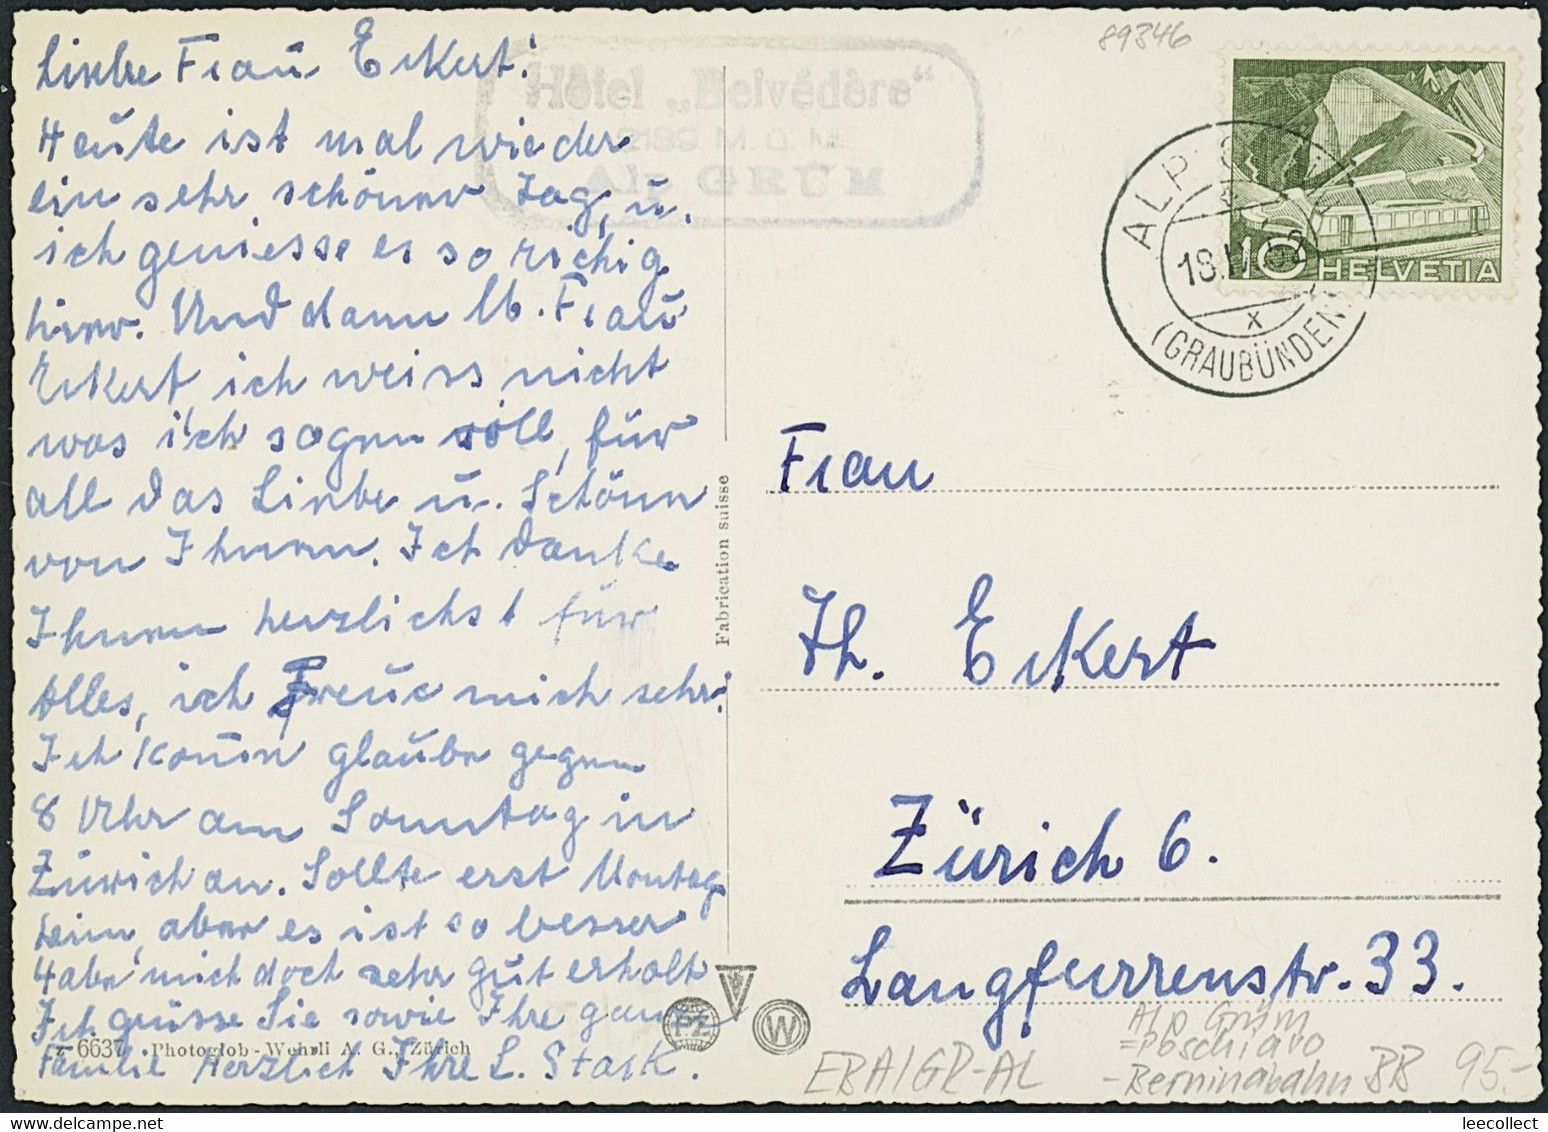 Liebe Frau Eckert!
Heute ist mal wieder
ein sehr schöner Tag, u.
ich geniesse es so richtig
hier. Und dann lb. Frau
Eckert, ich weiss nicht
was ich sagen soll, für
all das Liebe u. Schöne
von Ihnen. Ich danke
Ihnen herzlichst für
Alles, ich freue mich sehr!
Ich komme glaube gegen
8 Uhr am Sonntag in
Zürich an. Sollte erst Montag
heim, aber es ist so besser
Habe mich doch sehr gut erholt
Ich grüsse Sie sowie Ihre ganze
Familie Herzlich Ihre L. Stark.
6637 Photoglob-Wehrli A. G., Zürich
Hôtel „Belvédère“
2189 M. Ü. M.
Alp GRÜM
Fabrication suisse
PZ
W
89346
10 HELVETIA
ALP GRÜM
18.IV.52
x
(GRAUBÜNDEN)
Frau
Th. Eckert
Zürich 6.
Langfurrenstr. 33.
Alp Grüm
=Poschiavo
-Berninabahn BB 95.-
EBA/GR-AL
leecollect